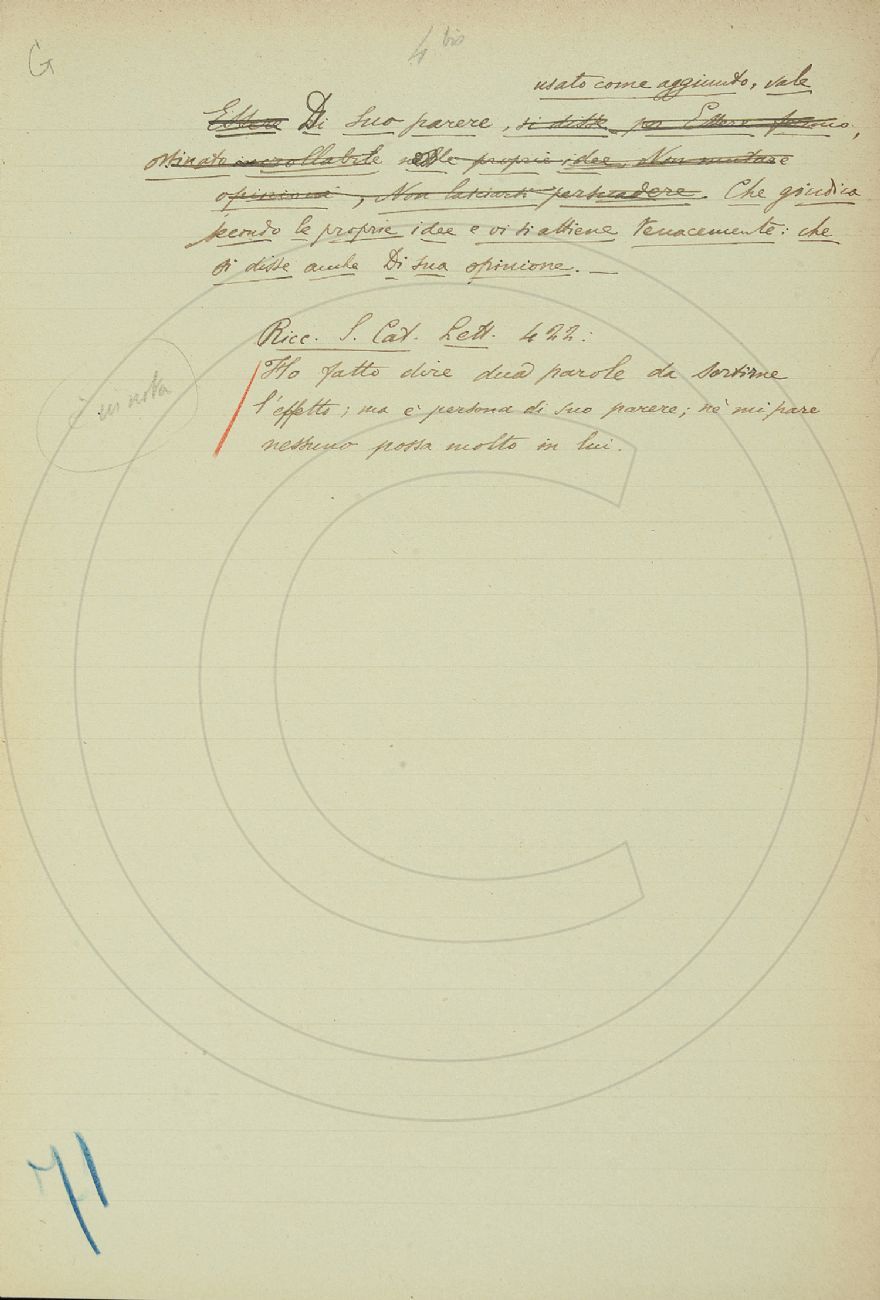 G
4 bis
usato come aggiunto, vale
Essere Di suo parere, si disse per Essere fermo,
ostinato incrollabile nelle proprie idee, Non mutare
opinione, Non lasciarsi persuadere. Che giudica
secondo le proprie idee e vi si attiene tenacemente: che
si disse anche Di sua opinione. —
Ricc. S. Cat. Lett. 422:
Ho fatto dire dua parole da sortirne
l'effetto; ma è persona di suo parere; nè mi pare
nessuno possa molto in lui.
è in nota
71